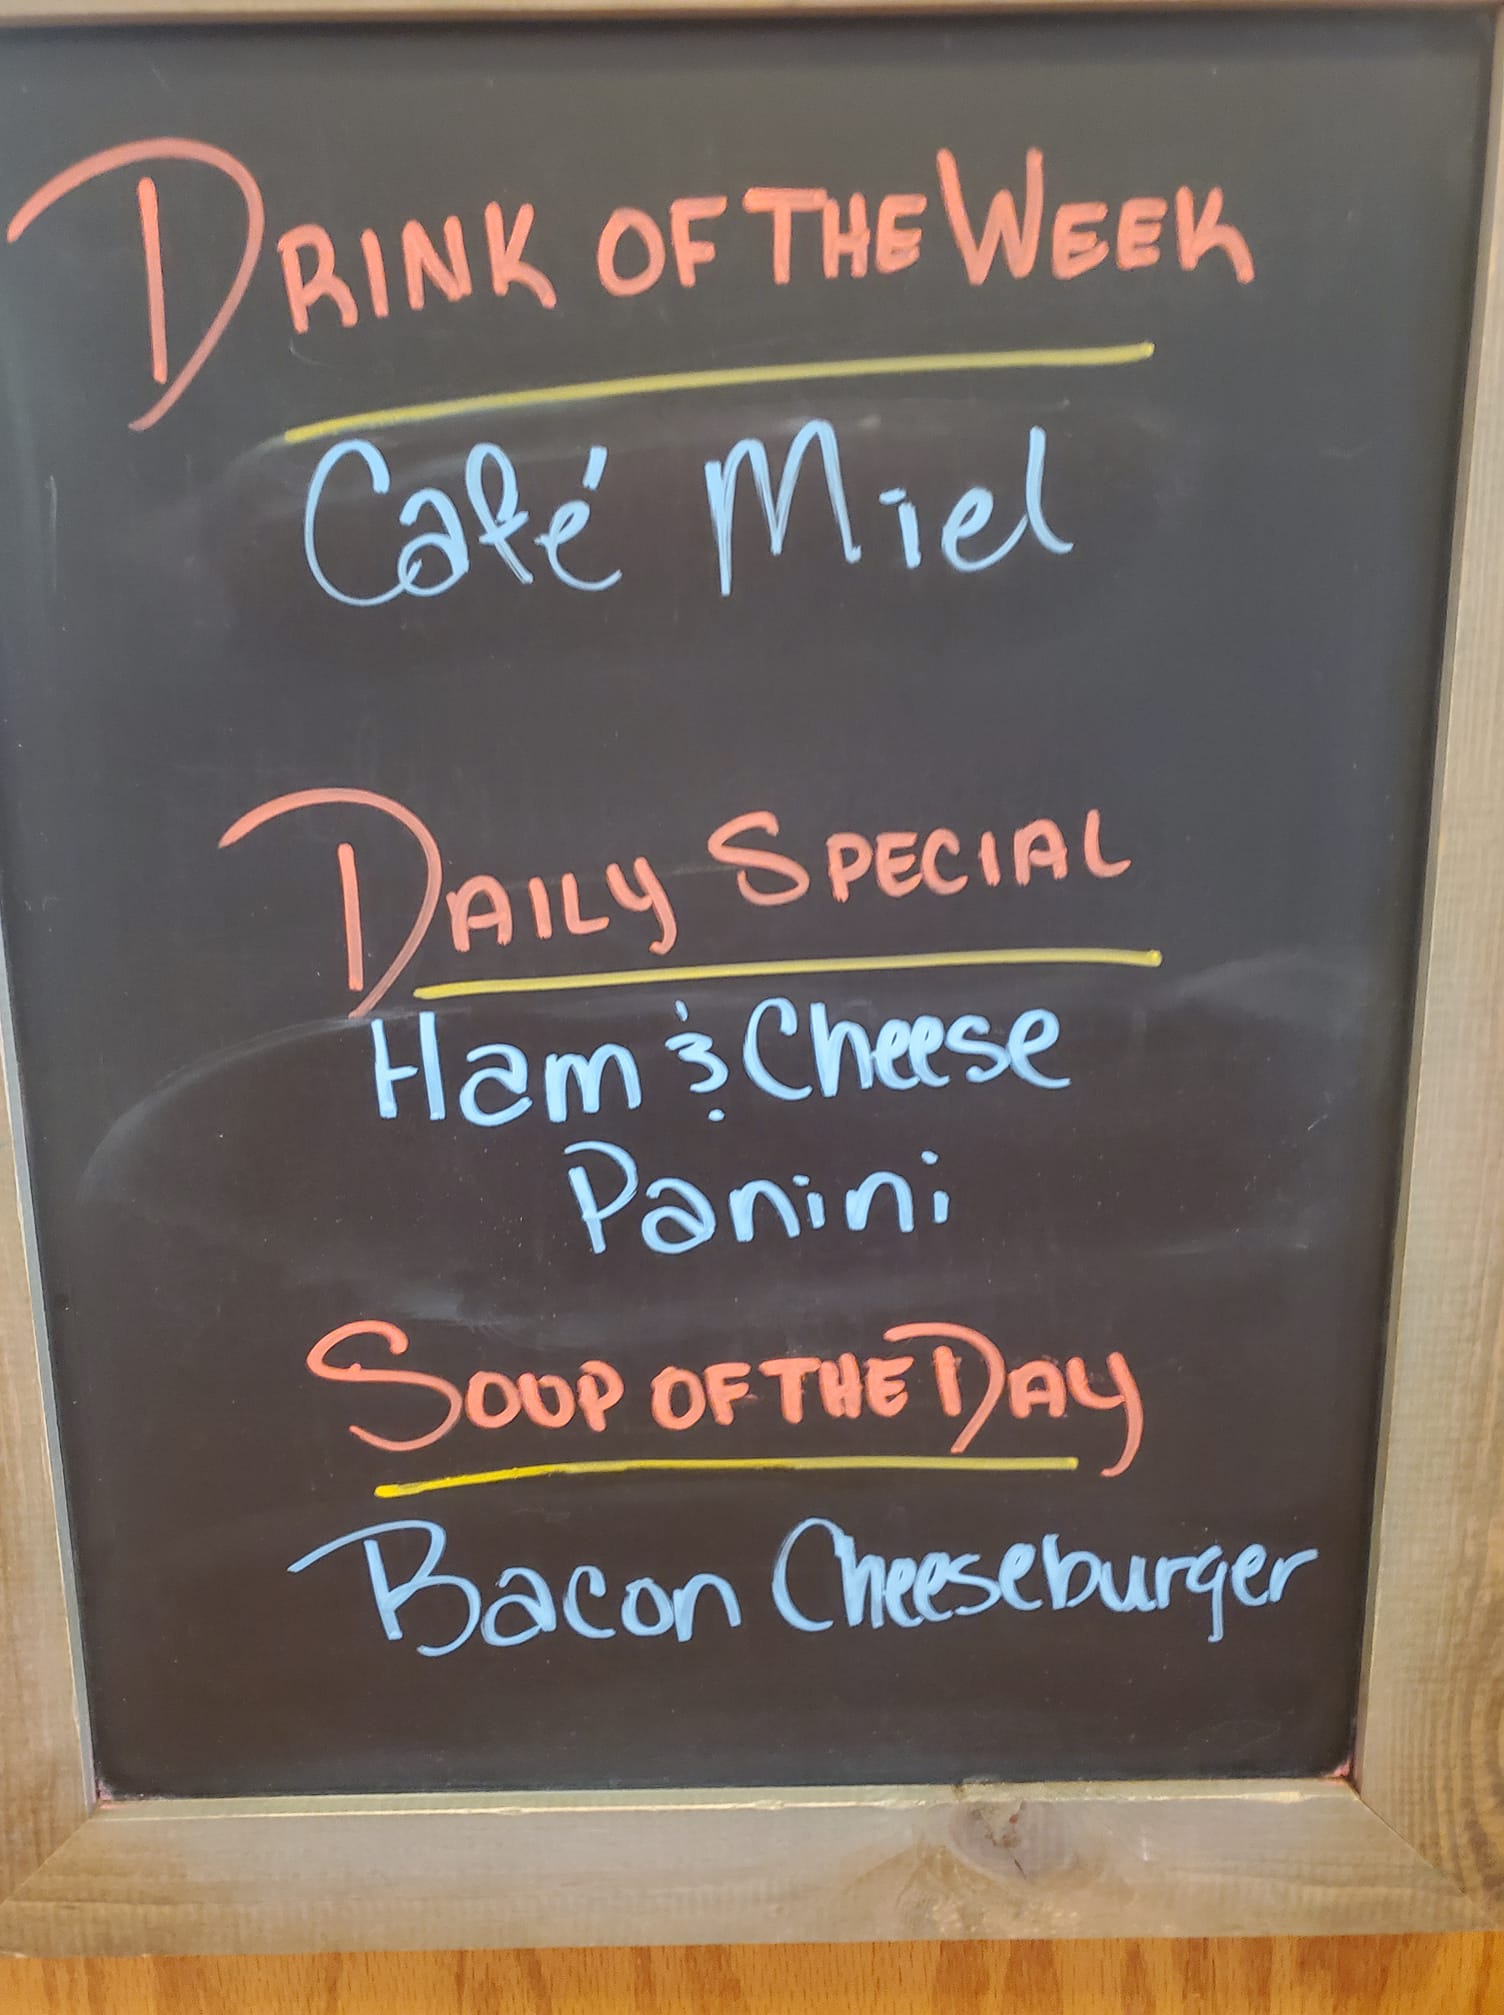 DRINK OF THE WEEK
Café Miel
DAILY SPECIAL
Ham & Cheese
Panini
SOUP OF THE DAY
Bacon Cheeseburger